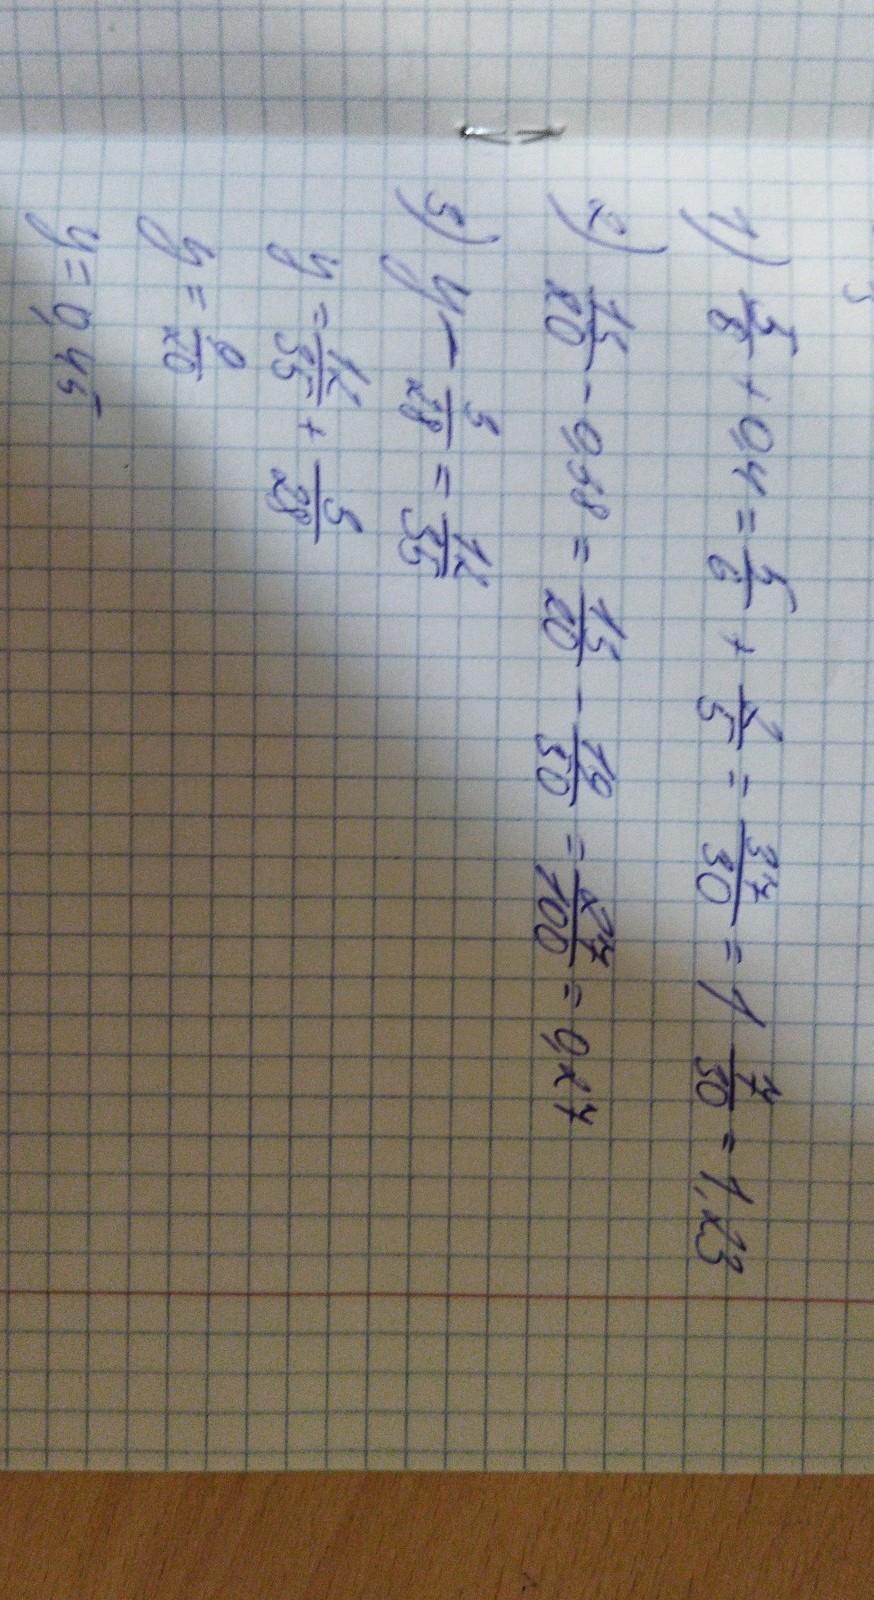 1) 5/6 + 0,4 = 5/6 + 2/5 = 37/30 = 1 7/30 = 1,23
2) 13/20 - 0,38 = 13/20 - 19/50 = 27/100 = 0,27
3) y - 5/28 = 12/35
y = 12/35 + 5/28
y = 9/20
y = 0,45